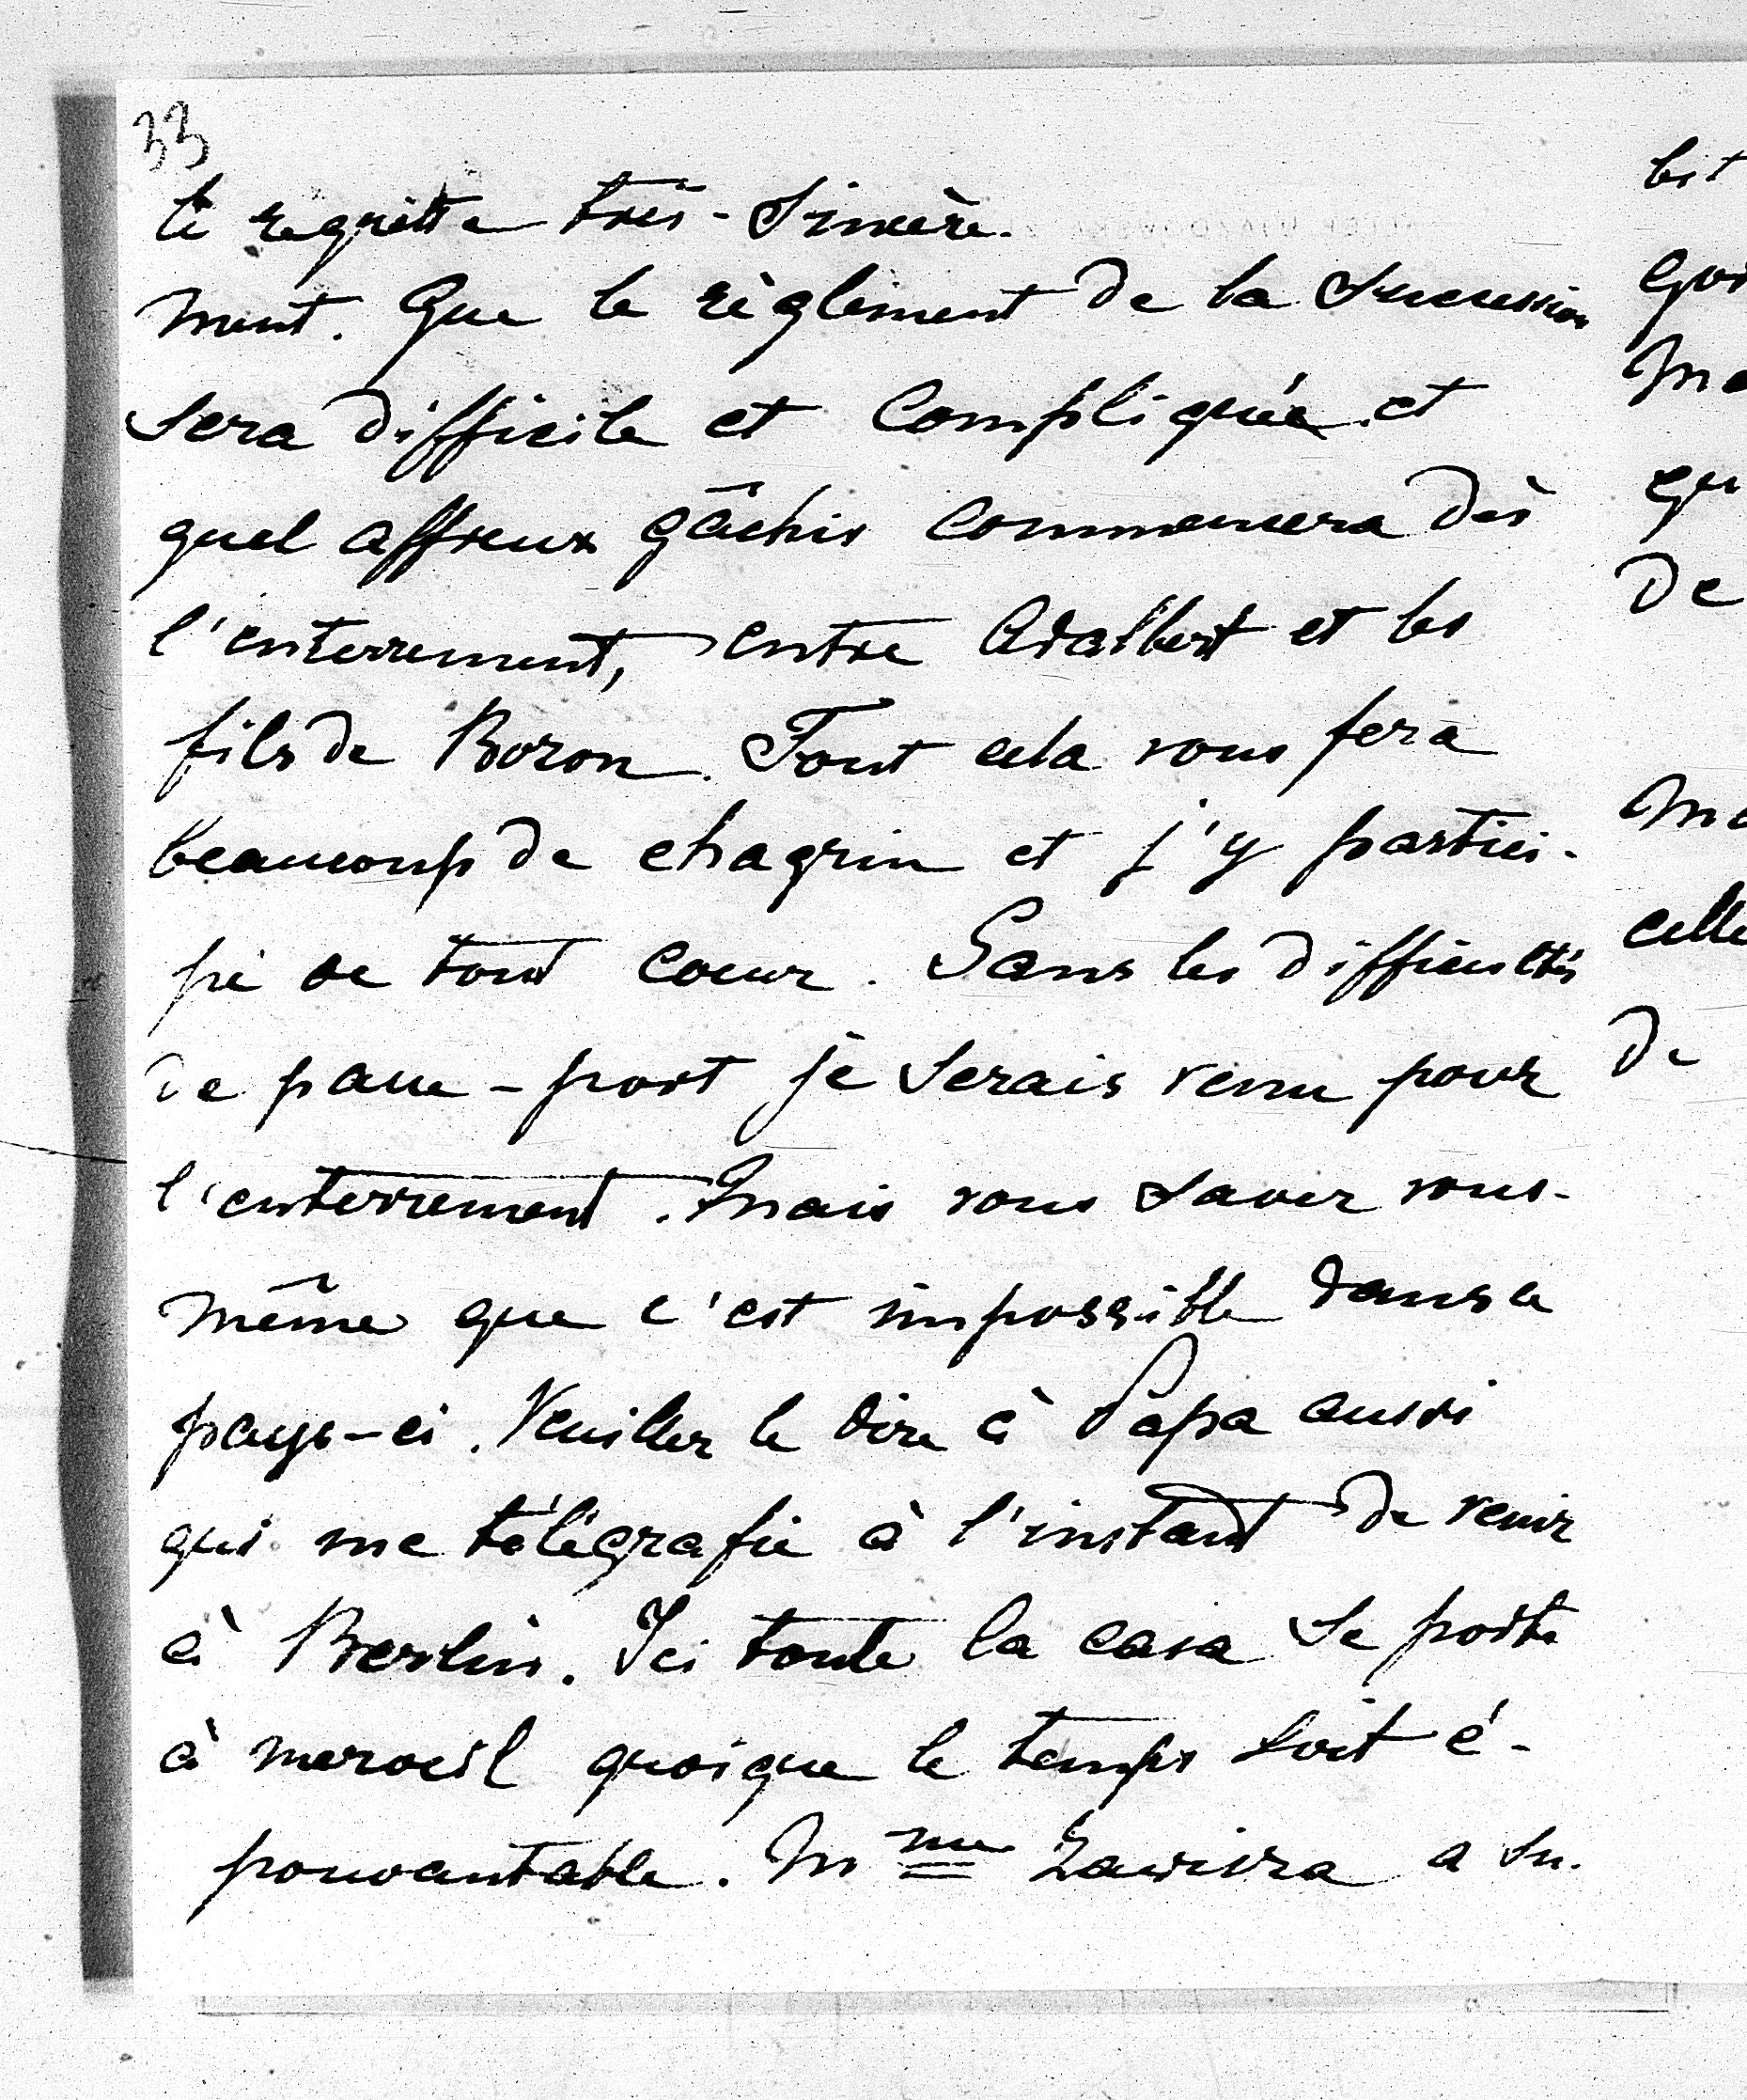 33
le regrette très-sincère-
ment. Que le règlement de la succession
sera difficile et compliquée et
quel affreux gâchis commencera dès
l'enterrement, entre Adalbert et les
fils de Boron. Tout cela vous fera
beaucoup de chagrin et j'y partici-
pe de tout coeur. Sans les difficultés
de passe-port je serais venu pour
l'enterrement. Mais vous savez vous-
même que c'est impossible dans ce
pays-ci. Veuillez le dire à Papa aussi
qui me télégrafie à l'instant de venir
à Berlin. Ici toute la casa se porte
à merveil quoique le temps soit é-
pouvantable. Mme a su.
bit
qu
de
celle
de